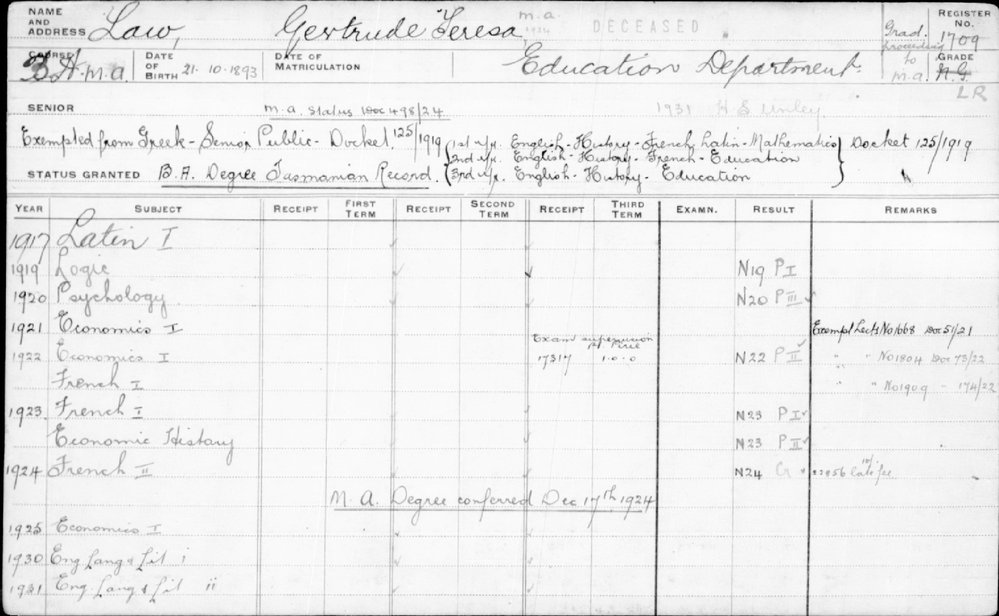 NAME AND ADDRESS Law, Gertrude Teresa M.A. 1924 DECEASED Grad. proceeding to M.A. REGISTER No. 1709
COURSE B.A. M.A. DATE OF BIRTH 21.10.1893 DATE OF MATRICULATION Education Department. GRADE N.G. LR
SENIOR M.A. Status Doc 498/24 1931 H S Unley
Exempted from Greek - Senior Public - Docket 125/1919
1st yr. English - History - French Latin - Mathematics
2nd yr. English - History - French - Education
3rd yr. English - History - Education
Docket 125/1919
STATUS GRANTED B.A. Degree Tasmanian Record.
YEAR SUBJECT RECEIPT FIRST TERM RECEIPT SECOND TERM RECEIPT THIRD TERM EXAMN. RESULT REMARKS
1917 Latin I
1919 Logic N19 P I
1920 Psychology N20 P III
1921 Economics I Exempt Lects No 1668 Doc 51/21
Exam supervision Pt Pirie
1922 Economics I 17317 1.0.0 N22 P II " " No 1804 Doc 73/22
French I " " No 1909 - 174/22
1923 French I N23 P I
Economic History N23 P II
1924 French II N24 Cr 22956 late fee 10/-
M.A. Degree conferred Dec 17th, 1924
1925 Economics I
1930 Eng. Lang & Lit i
1931 Eng. Lang & Lit ii